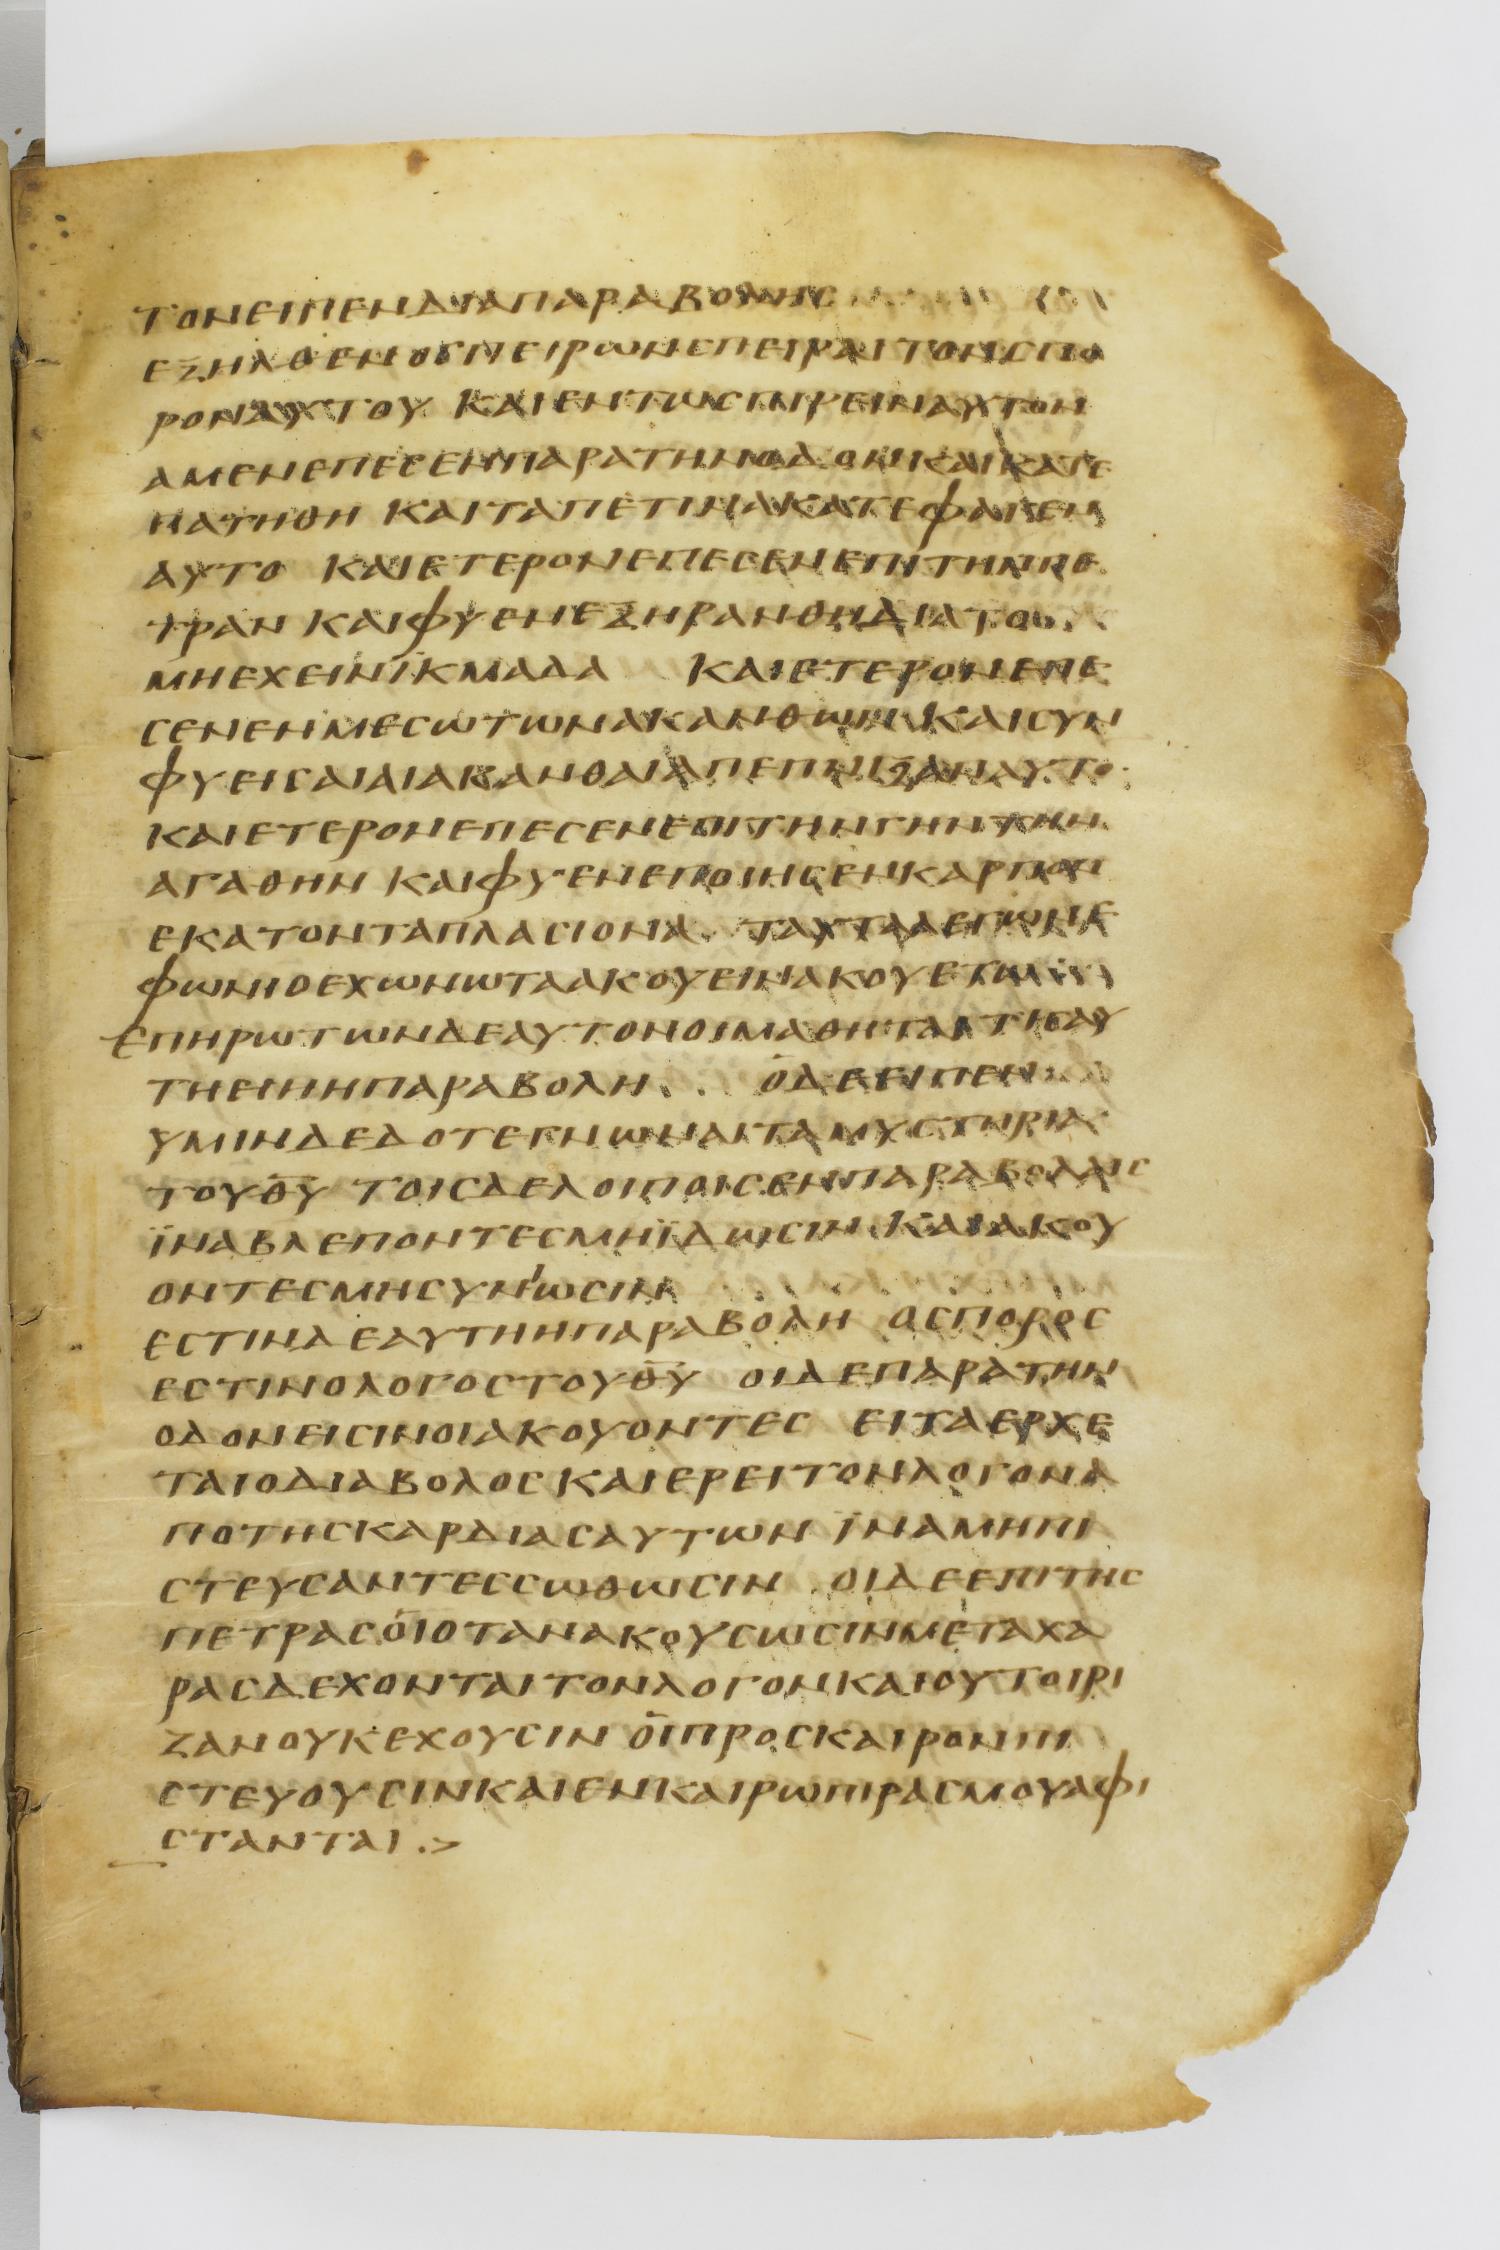 ΤΟΝΕΙΠΕΝΔΙΑΠΑΡΑΒΟΛΗC
ΕΞΗΛΘΕΝΟCΠΕΙΡΩΝCΠΕΙΡΑΙΤΟΝCΠΟ
ΡΟΝΑΥΤΟΥ ΚΑΙΕΝΤΩCΠΙΡΕΙΝΑΥΤΟΝ
ΑΜΕΝΕΠΕCΕΝΠΑΡΑΤΗΝΟΔΟΝΚΑΙΚΑΤΕ
ΠΑΤΗΘΗ ΚΑΙΤΑΠΕΤΙΝΑΚΑΤΕΦΑΓΕΝ
ΑΥΤΟ ΚΑΙΕΤΕΡΟΝΕΠΕCΕΝΕΠΙΤΗΝΠΕ
ΤΡΑΝ ΚΑΙΦΥΕΝΕΞΗΡΑΝΘΗΔΙΑΤΟ
ΜΗΕΧΕΙΝΪΚΜΑΔΑ ΚΑΙΕΤΕΡΟΝΕΠΕ
CΕΝΕΝΜΕCΩΤΩΝΑΚΑΝΘΩΝ ΚΑΙCΥΝ
ΦΥΕΙCΑΙΑΙΑΚΑΝΘΑΙΑΠΕΠΝΙΞΑΝΑΥΤΟ
ΚΑΙΕΤΕΡΟΝΕΠΕCΕΝΕΠΙΤΗΝΓΗΝΤΗΝ
ΑΓΑΘΗΝ ΚΑΙΦΥΕΝΕΠΟΙΗCΕΝΚΑΡΠΟΝ
ΕΚΑΤΟΝΤΑΠΛΑCΙΟΝΑ ΤΑΥΤΑΛΕΓΩΝΕ
ΦΩΝΙΟΕΧΩΝΩΤΑΑΚΟΥΕΙΝΑΚΟΥΕΤΩ
ΕΠΗΡΩΤΩΝΔΕΑΥΤΟΝΟΙΜΑΘΗΤΑΙΤΙCΑΥ
ΤΗΕΙΗΗΠΑΡΑΒΟΛΗ ΟΔΕΕΙΠΕΝ
ΥΜΙΝΔΕΔΟΤΕΓΝΩΝΑΙΤΑΜΥCΤΗΡΙΑ
ΤΟΥΘ̅Υ̅ ΤΟΙCΔΕΛΟΙΠΟΙCΕΝΠΑΡΑΒΟΛΑΙC
ΪΝΑΒΛΕΠΟΝΤΕCΜΗΪΔΩCΙΝ ΚΑΙΑΚΟΥ
ΟΝΤΕCΜΗCΥΝΙΩCΙΝ
ΕCΤΙΝΔΕΑΥΤΗΗΠΑΡΑΒΟΛΗ ΟCΠΟΡΟC
ΕCΤΙΝΟΛΟΓΟCΤΟΥΘ̅Υ̅ ΟΙΔΕΠΑΡΑΤΗΝ
ΟΔΟΝΕΙCΙΝΟΙΑΚΟΥΟΝΤΕC ΕΙΤΑΕΡΧΕ
ΤΑΙΟΔΙΑΒΟΛΟCΚΑΙΕΡΕΙΤΟΝΛΟΓΟΝΑ
ΠΟΤΗCΚΑΡΔΙΑCΑΥΤΩΝ ΪΝΑΜΗΠΙ
CΤΕΥCΑΝΤΕCCΩΘΩCΙΝ ΟΙΔΕΕΠΙΤΗC
ΠΕΤΡΑCΟΙΟΤΑΝΑΚΟΥCΩCΙΝΜΕΤΑΧΑ
ΡΑCΔΕΧΟΝΤΑΙΤΟΝΛΟΓΟΝΚΑΙΟΥΤΟΙΡΙ
ΖΑΝΟΥΚΕΧΟΥCΙΝ ΟΙΠΡΟCΚΑΙΡΟΝΠΙ
CΤΕΥΟΥCΙΝΚΑΙΕΝΚΑΙΡΩΠΙΡΑCΜΟΥΑΦΙ
CΤΑΝΤΑΙ .>